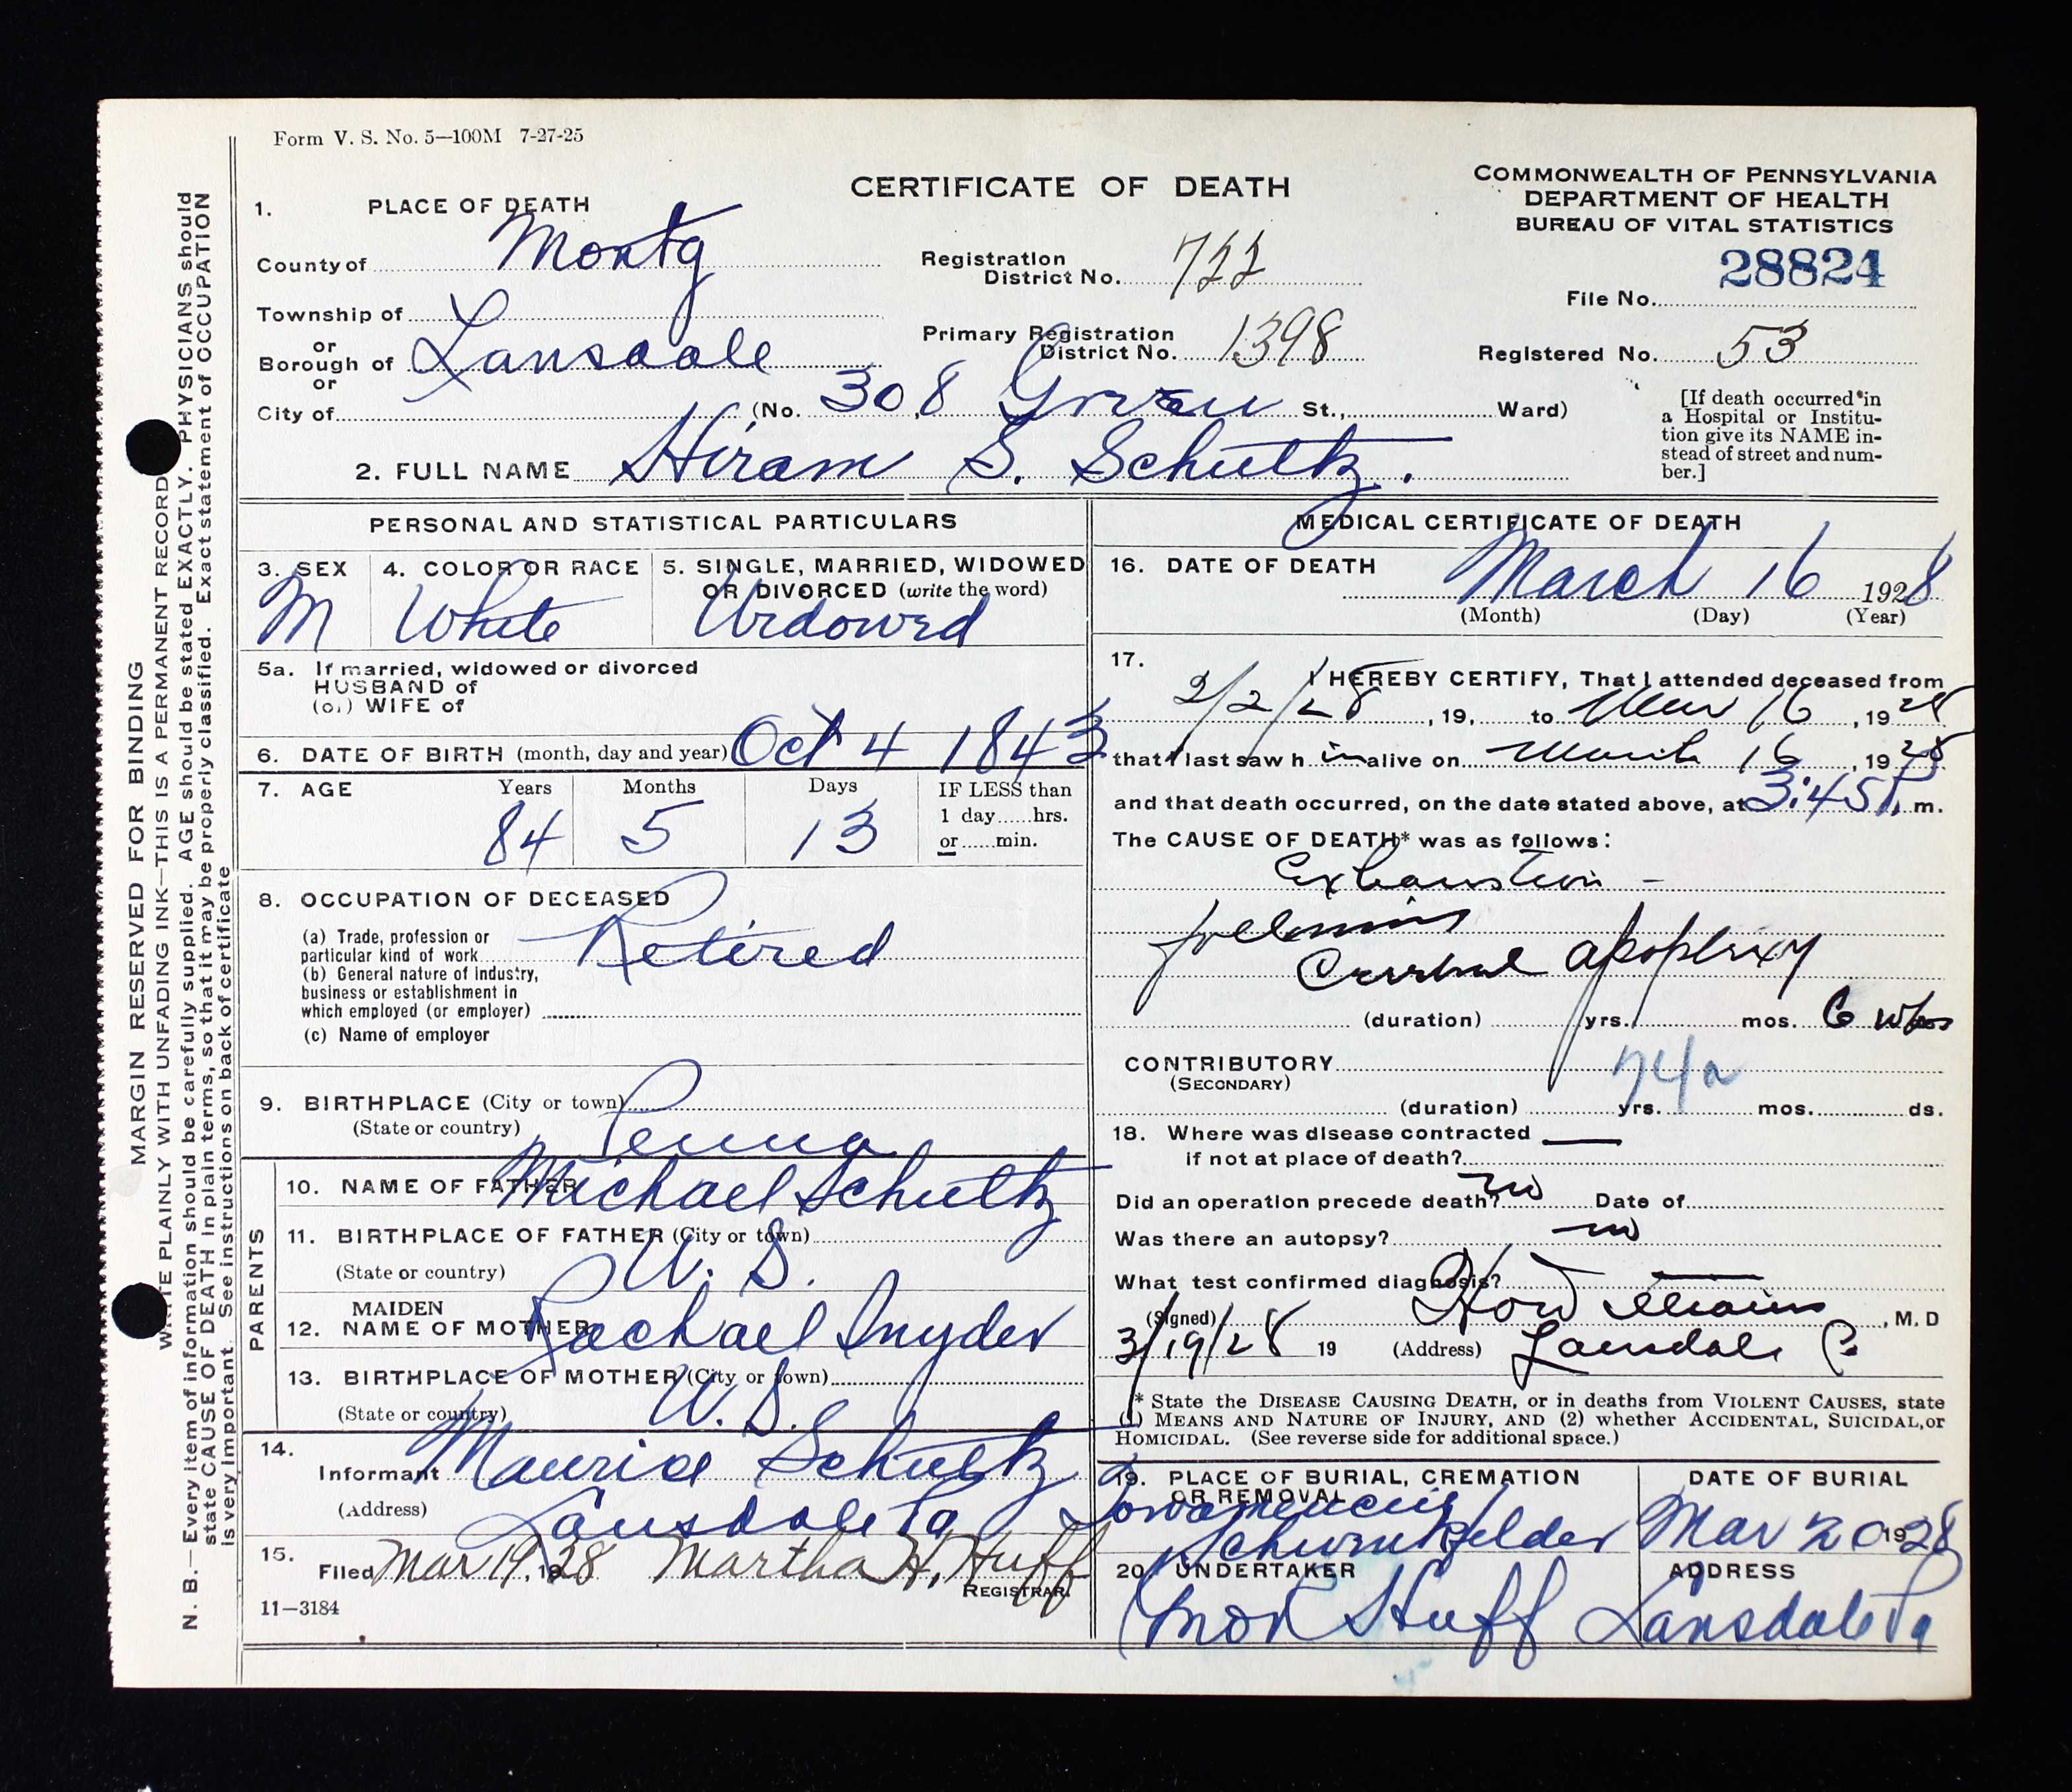 Form V. S. No. 5—100M 7-27-25
CERTIFICATE OF DEATH
COMMONWEALTH OF PENNSYLVANIA
DEPARTMENT OF HEALTH
BUREAU OF VITAL STATISTICS
1. PLACE OF DEATH
County of Montg
Registration District No. 722
28824
File No.
Township of
or
Borough of Lansdale
or
Primary Registration District No. 1398
Registered No. 53
City of (No. 308 Green St., Ward)
[If death occurred in
a Hospital or Institu-
tion give its NAME in-
stead of street and num-
ber.]
2. FULL NAME Hiram S. Schultz.
PERSONAL AND STATISTICAL PARTICULARS
3. SEX M
4. COLOR OR RACE White
5. SINGLE, MARRIED, WIDOWED
OR DIVORCED (write the word)
Widowed
5a. If married, widowed or divorced
HUSBAND of
(or) WIFE of
6. DATE OF BIRTH (month, day and year) Oct 4 1843
7. AGE Years Months Days IF LESS than
84 5 13 1 day......hrs.
or......min.
8. OCCUPATION OF DECEASED
(a) Trade, profession or
particular kind of work Retired
(b) General nature of industry,
business or establishment in
which employed (or employer)
(c) Name of employer
9. BIRTHPLACE (City or town)
(State or country) Penna
PARENTS
10. NAME OF FATHER Michael Schultz
11. BIRTHPLACE OF FATHER (City or town)
(State or country) U. S.
12. MAIDEN NAME OF MOTHER Rachael Snyder
13. BIRTHPLACE OF MOTHER (City or town)
(State or country) U. S.
14.
Informant Maurice Schultz
(Address) Lansdale Pa
15.
Filed Mar 19, 1928 Martha H. Huff
REGISTRAR.
11—3184
MEDICAL CERTIFICATE OF DEATH
16. DATE OF DEATH
March 16 1928
(Month) (Day) (Year)
17.
I HEREBY CERTIFY, That I attended deceased from
2/2/28, 19, to Mar 16, 1928
that I last saw h im alive on March 16, 1928
and that death occurred, on the date stated above, at 3:45 P. m.
The CAUSE OF DEATH* was as follows:
Exhaustion -
following
Cerebral apoplexy
(duration) yrs. mos. 6 wks
CONTRIBUTORY
(SECONDARY)
74a
(duration) yrs. mos. ds.
18. Where was disease contracted
if not at place of death?
Did an operation precede death? no Date of
Was there an autopsy? no
What test confirmed diagnosis?
(Signed) , M. D
3/19/28 19 (Address) Lansdale P
* State the DISEASE CAUSING DEATH, or in deaths from VIOLENT CAUSES, state
(1) MEANS AND NATURE OF INJURY, AND (2) whether ACCIDENTAL, SUICIDAL, or
HOMICIDAL. (See reverse side for additional space.)
19. PLACE OF BURIAL, CREMATION
OR REMOVAL
Towamencin
Schwenkfelder
DATE OF BURIAL
Mar 20 1928
20. UNDERTAKER
Huff
ADDRESS
Lansdale Pa
MARGIN RESERVED FOR BINDING
WRITE PLAINLY WITH UNFADING INK—THIS IS A PERMANENT RECORD
N. B.—Every item of information should be carefully supplied. AGE should be stated EXACTLY. PHYSICIANS should
state CAUSE OF DEATH in plain terms, so that it may be properly classified. Exact statement of OCCUPATION
is very important. See instructions on back of certificate